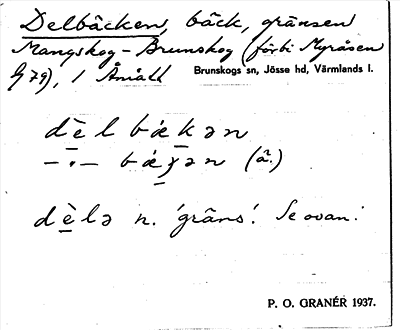 Delbäcken, bäck, gränsen
Mangskog-Brunskog (förbi Myråsen
G 79), i Ånält
Brunskogs sn, Jösse hd, Värmlands l.
dèlbækən
—·— bæχən (ã.)
dèlə n. 'gräns'. Se ovan.
P. O. GRANÉR 1937.